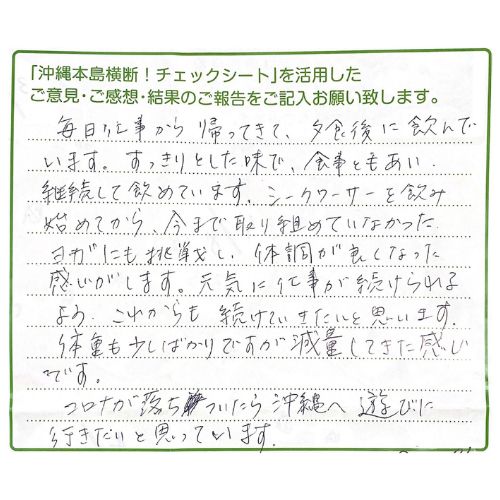 「沖縄本島横断！チェックシート」を活用した
ご意見・ご感想・結果のご報告をご記入お願い致します。
毎日仕事から帰ってきて、夕食後に飲んで
います。すっきりとした味で、食事ともあい
継続して飲めています。シークワーサーを飲み
始めてから、今まで取り組めていなかった
ヨガにも挑戦し、体調が良くなった
感じがします。元気に仕事が続けられる
よう、これからも続けていきたいと思います。
体重も少しばかりですが減量してきた感じ
です。
コロナが落ちついたら沖縄へ遊びに
行きたいと思っています。